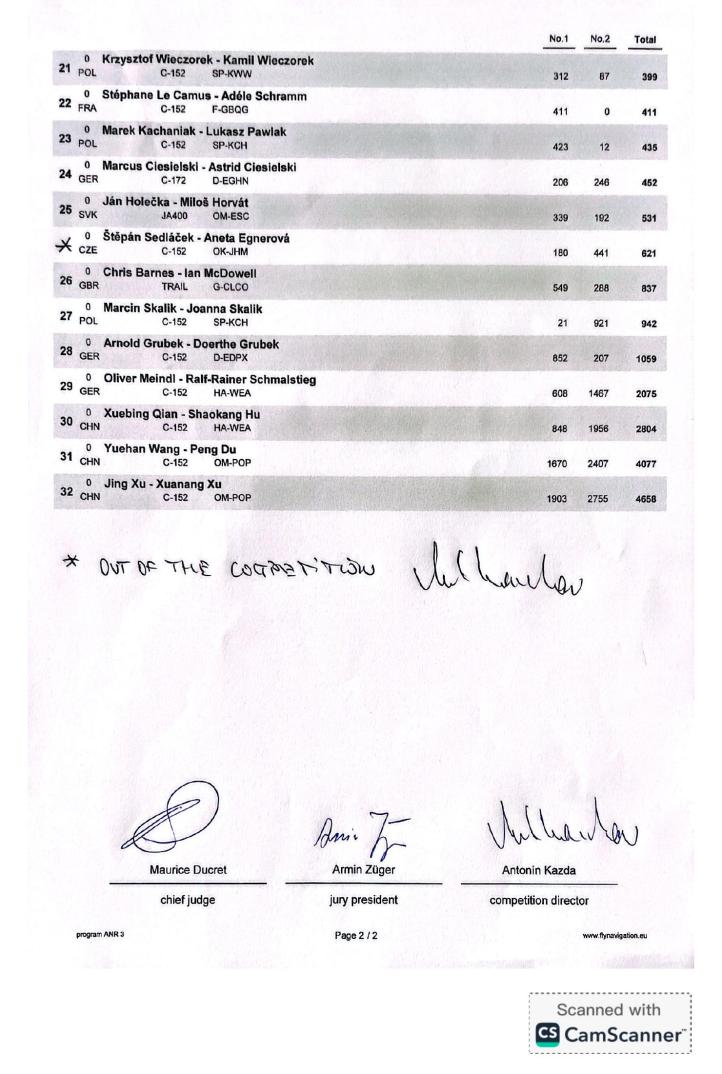 No.1 No.2 Total
21 0 Krzysztof Wieczorek - Kamil Wieczorek
POL C-152 SP-KWW 312 87 399
22 0 Stéphane Le Camus - Adéle Schramm
FRA C-152 F-GBQG 411 0 411
23 0 Marek Kachaniak - Lukasz Pawlak
POL C-152 SP-KCH 423 12 435
24 0 Marcus Ciesielski - Astrid Ciesielski
GER C-172 D-EGHN 206 246 452
25 0 Ján Holečka - Miloš Horvát
SVK JA400 OM-ESC 339 192 531
* 0 Štěpán Sedláček - Aneta Egnerová
CZE C-152 OK-JHM 180 441 621
26 0 Chris Barnes - Ian McDowell
GBR TRAIL G-CLCO 549 288 837
27 0 Marcin Skalik - Joanna Skalik
POL C-152 SP-KCH 21 921 942
28 0 Arnold Grubek - Doerthe Grubek
GER C-152 D-EDPX 852 207 1059
29 0 Oliver Meindl - Ralf-Rainer Schmalstieg
GER C-152 HA-WEA 608 1467 2075
30 0 Xuebing Qian - Shaokang Hu
CHN C-152 HA-WEA 848 1956 2804
31 0 Yuehan Wang - Peng Du
CHN C-152 OM-POP 1670 2407 4077
32 0 Jing Xu - Xuanang Xu
CHN C-152 OM-POP 1903 2755 4658
* OUT OF THE COMPETITION
Maurice Ducret Armin Züger Antonin Kazda
chief judge jury president competition director
program ANR 3 Page 2 / 2 www.flynavigation.eu
Scanned with
CS CamScanner™